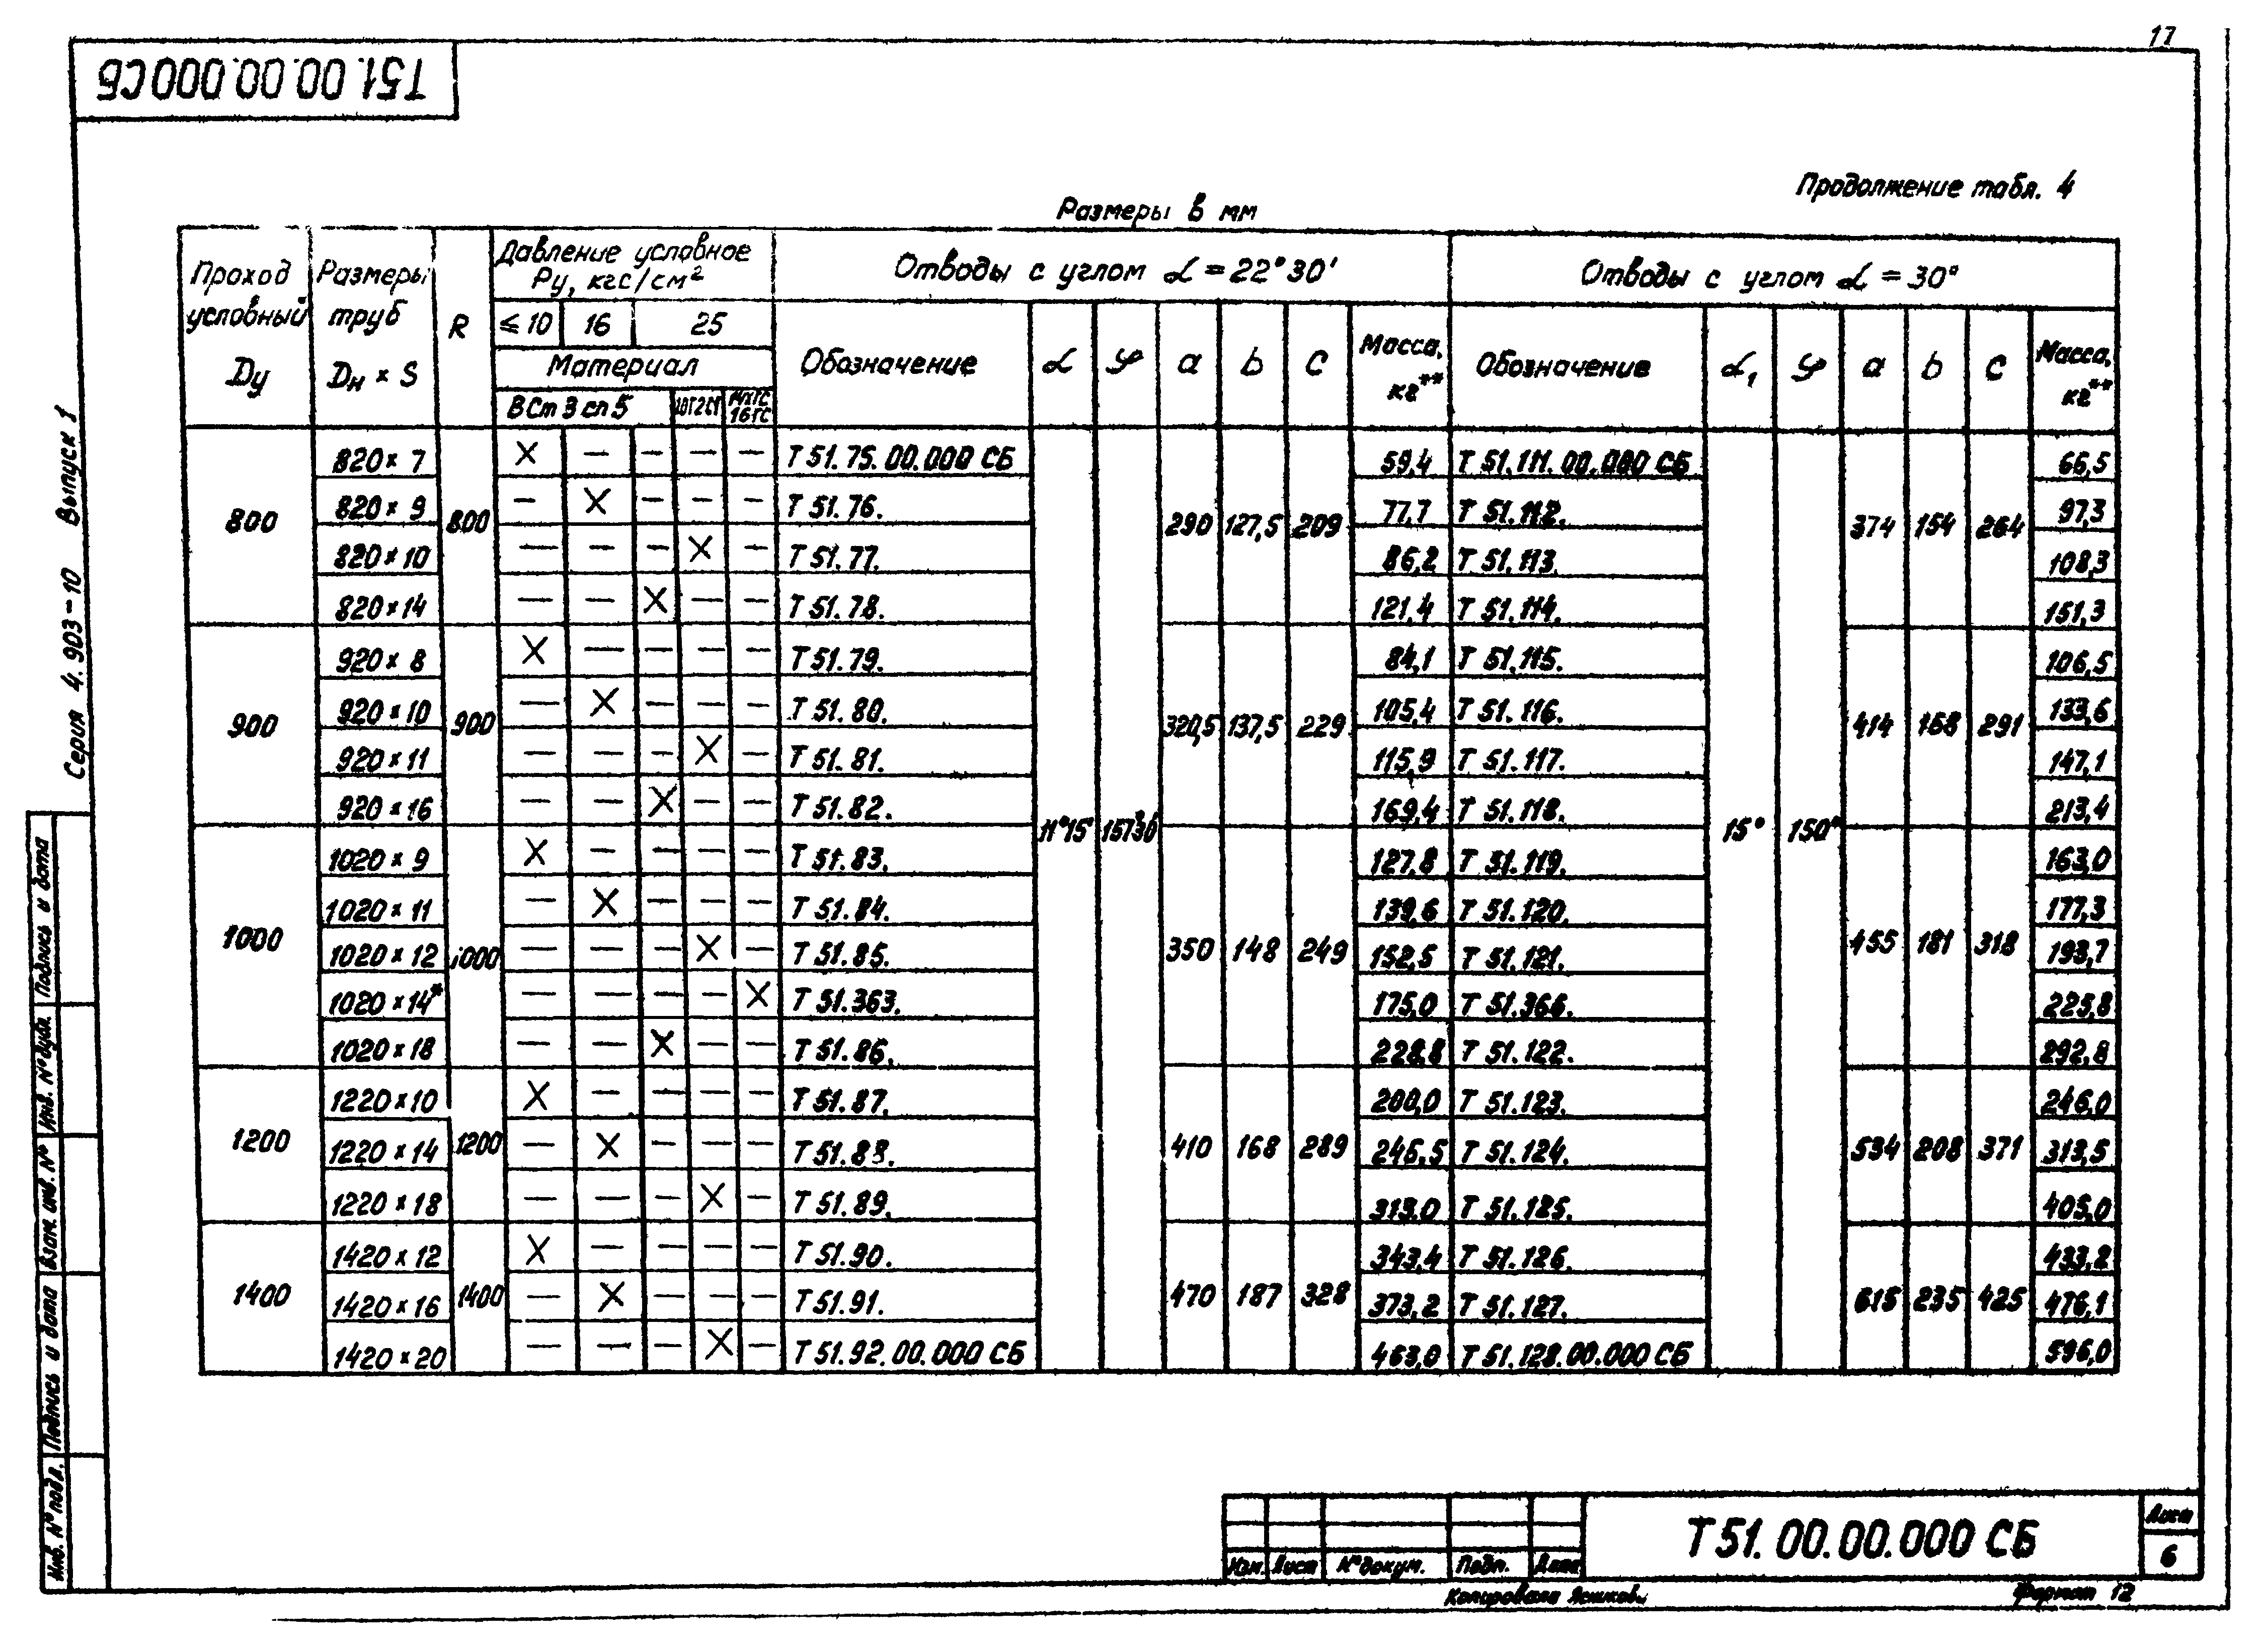 17
Т51.00.00.000 СБ
Продолжение табл. 4
Размеры в мм
Проход условный Dу
Размеры труб Dн × S
R
Давление условное Ру, кгс/см²
≤ 10 16 25
Материал
ВСт 3 сп 5 10Г2С1 14ХГС 16ГС
Отводы с углом α = 22°30'
Обозначение α φ a b c Масса, кг**
Отводы с углом α = 30°
Обозначение α₁ φ a b c Масса, кг**
800 800 290 127,5 209 374 154 264
820 × 7 × — — — — Т 51.75.00.000 СБ 59,4 Т 51.111.00.000 СБ 66,5
820 × 9 — × — — — Т 51.76. 77,7 Т 51.112. 97,3
820 × 10 — — — × — Т 51.77. 86,2 Т 51.113. 108,3
820 × 14 — — × — — Т 51.78. 121,4 Т 51.114. 151,3
900 900 320,5 137,5 229 414 168 291
920 × 8 × — — — — Т 51.79. 84,1 Т 51.115. 106,5
920 × 10 — × — — — Т 51.80. 105,4 Т 51.116. 133,6
920 × 11 — — — × — Т 51.81. 115,9 Т 51.117. 147,1
920 × 16 — — × — — Т 51.82. 169,4 Т 51.118. 213,4
11°15' 157°30' 15° 150°
1000 1000 350 148 249 455 181 318
1020 × 9 × — — — — Т 51.83. 127,8 Т 51.119. 163,0
1020 × 11 — × — — — Т 51.84. 139,6 Т 51.120. 177,3
1020 × 12 — — — × — Т 51.85. 152,5 Т 51.121. 193,7
1020 × 14* — — — — × Т 51.363. 175,0 Т 51.366. 225,8
1020 × 18 — — × — — Т 51.86. 228,8 Т 51.122. 292,8
1200 1200 410 168 289 534 208 371
1220 × 10 × — — — — Т 51.87. 200,0 Т 51.123. 246,0
1220 × 14 — × — — — Т 51.88. 246,5 Т 51.124. 313,5
1220 × 18 — — — × — Т 51.89. 313,0 Т 51.125. 405,0
1400 1400 470 187 328 615 235 425
1420 × 12 × — — — — Т 51.90. 343,4 Т 51.126. 433,2
1420 × 16 — × — — — Т 51.91. 373,2 Т 51.127. 476,1
1420 × 20 — — — × — Т 51.92.00.000 СБ 463,0 Т 51.128.00.000 СБ 596,0
Серия 4.903-10 Выпуск 1
Подпись и дата
Инв. № дубл.
Взам. инв. №
Подпись и дата
Инв. № подл.
Изм. Лист № докум. Подп. Дата
Т 51.00.00.000 СБ
Лист
6
Копировала
Формат 12